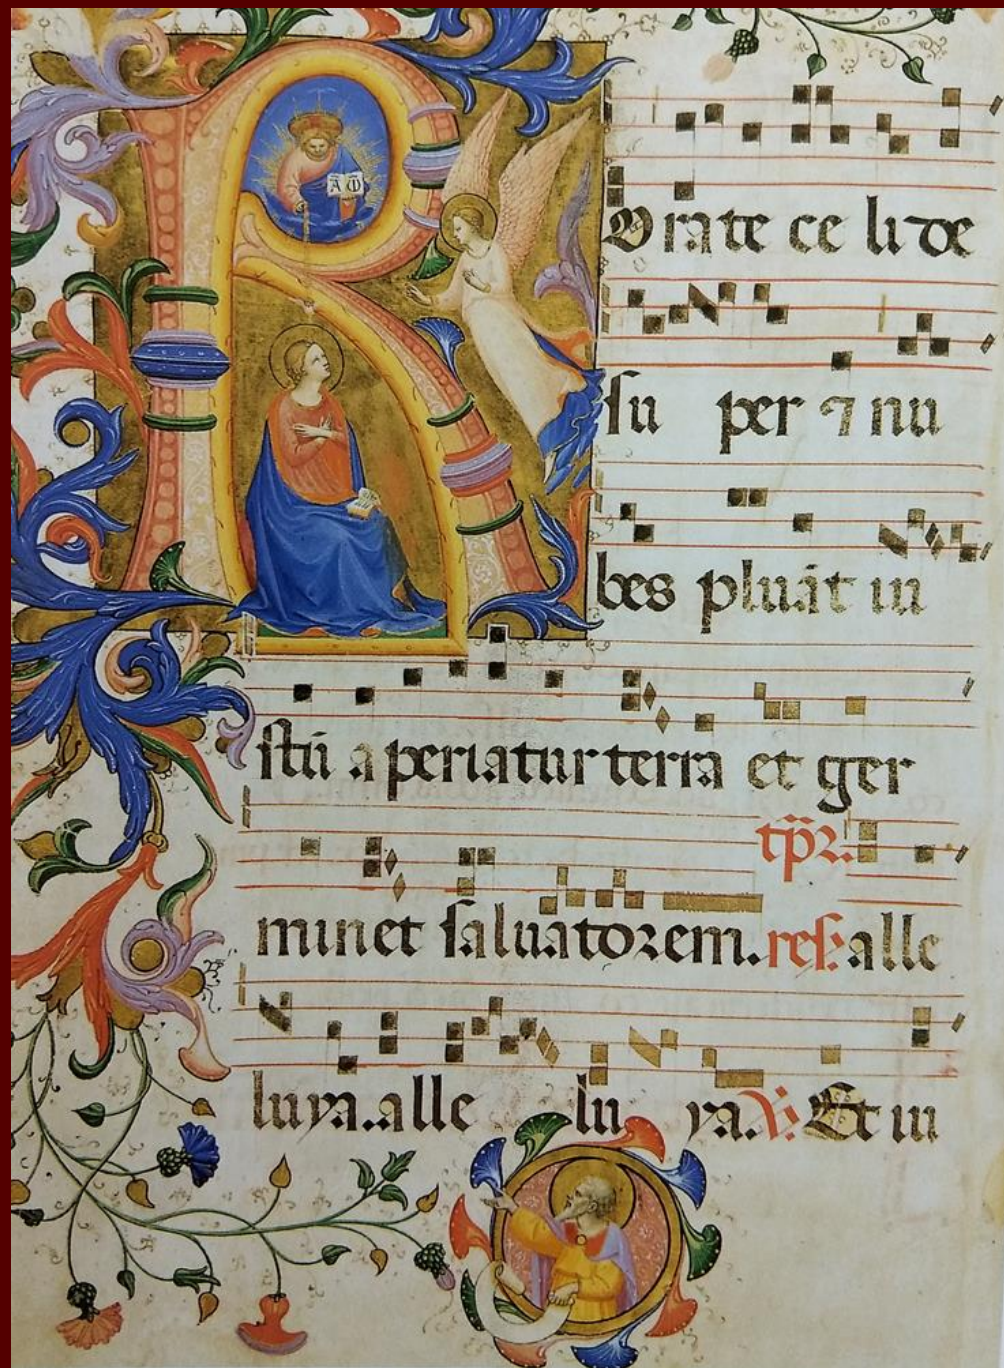 A ω
R Orate ce li de
su per ⁊ nu
bes pluāt iu
stū a periatur terra et ger
tp̄r.
minet saluatorem. resp̄. alle
luya. alle lu ya. ℣. Et iu